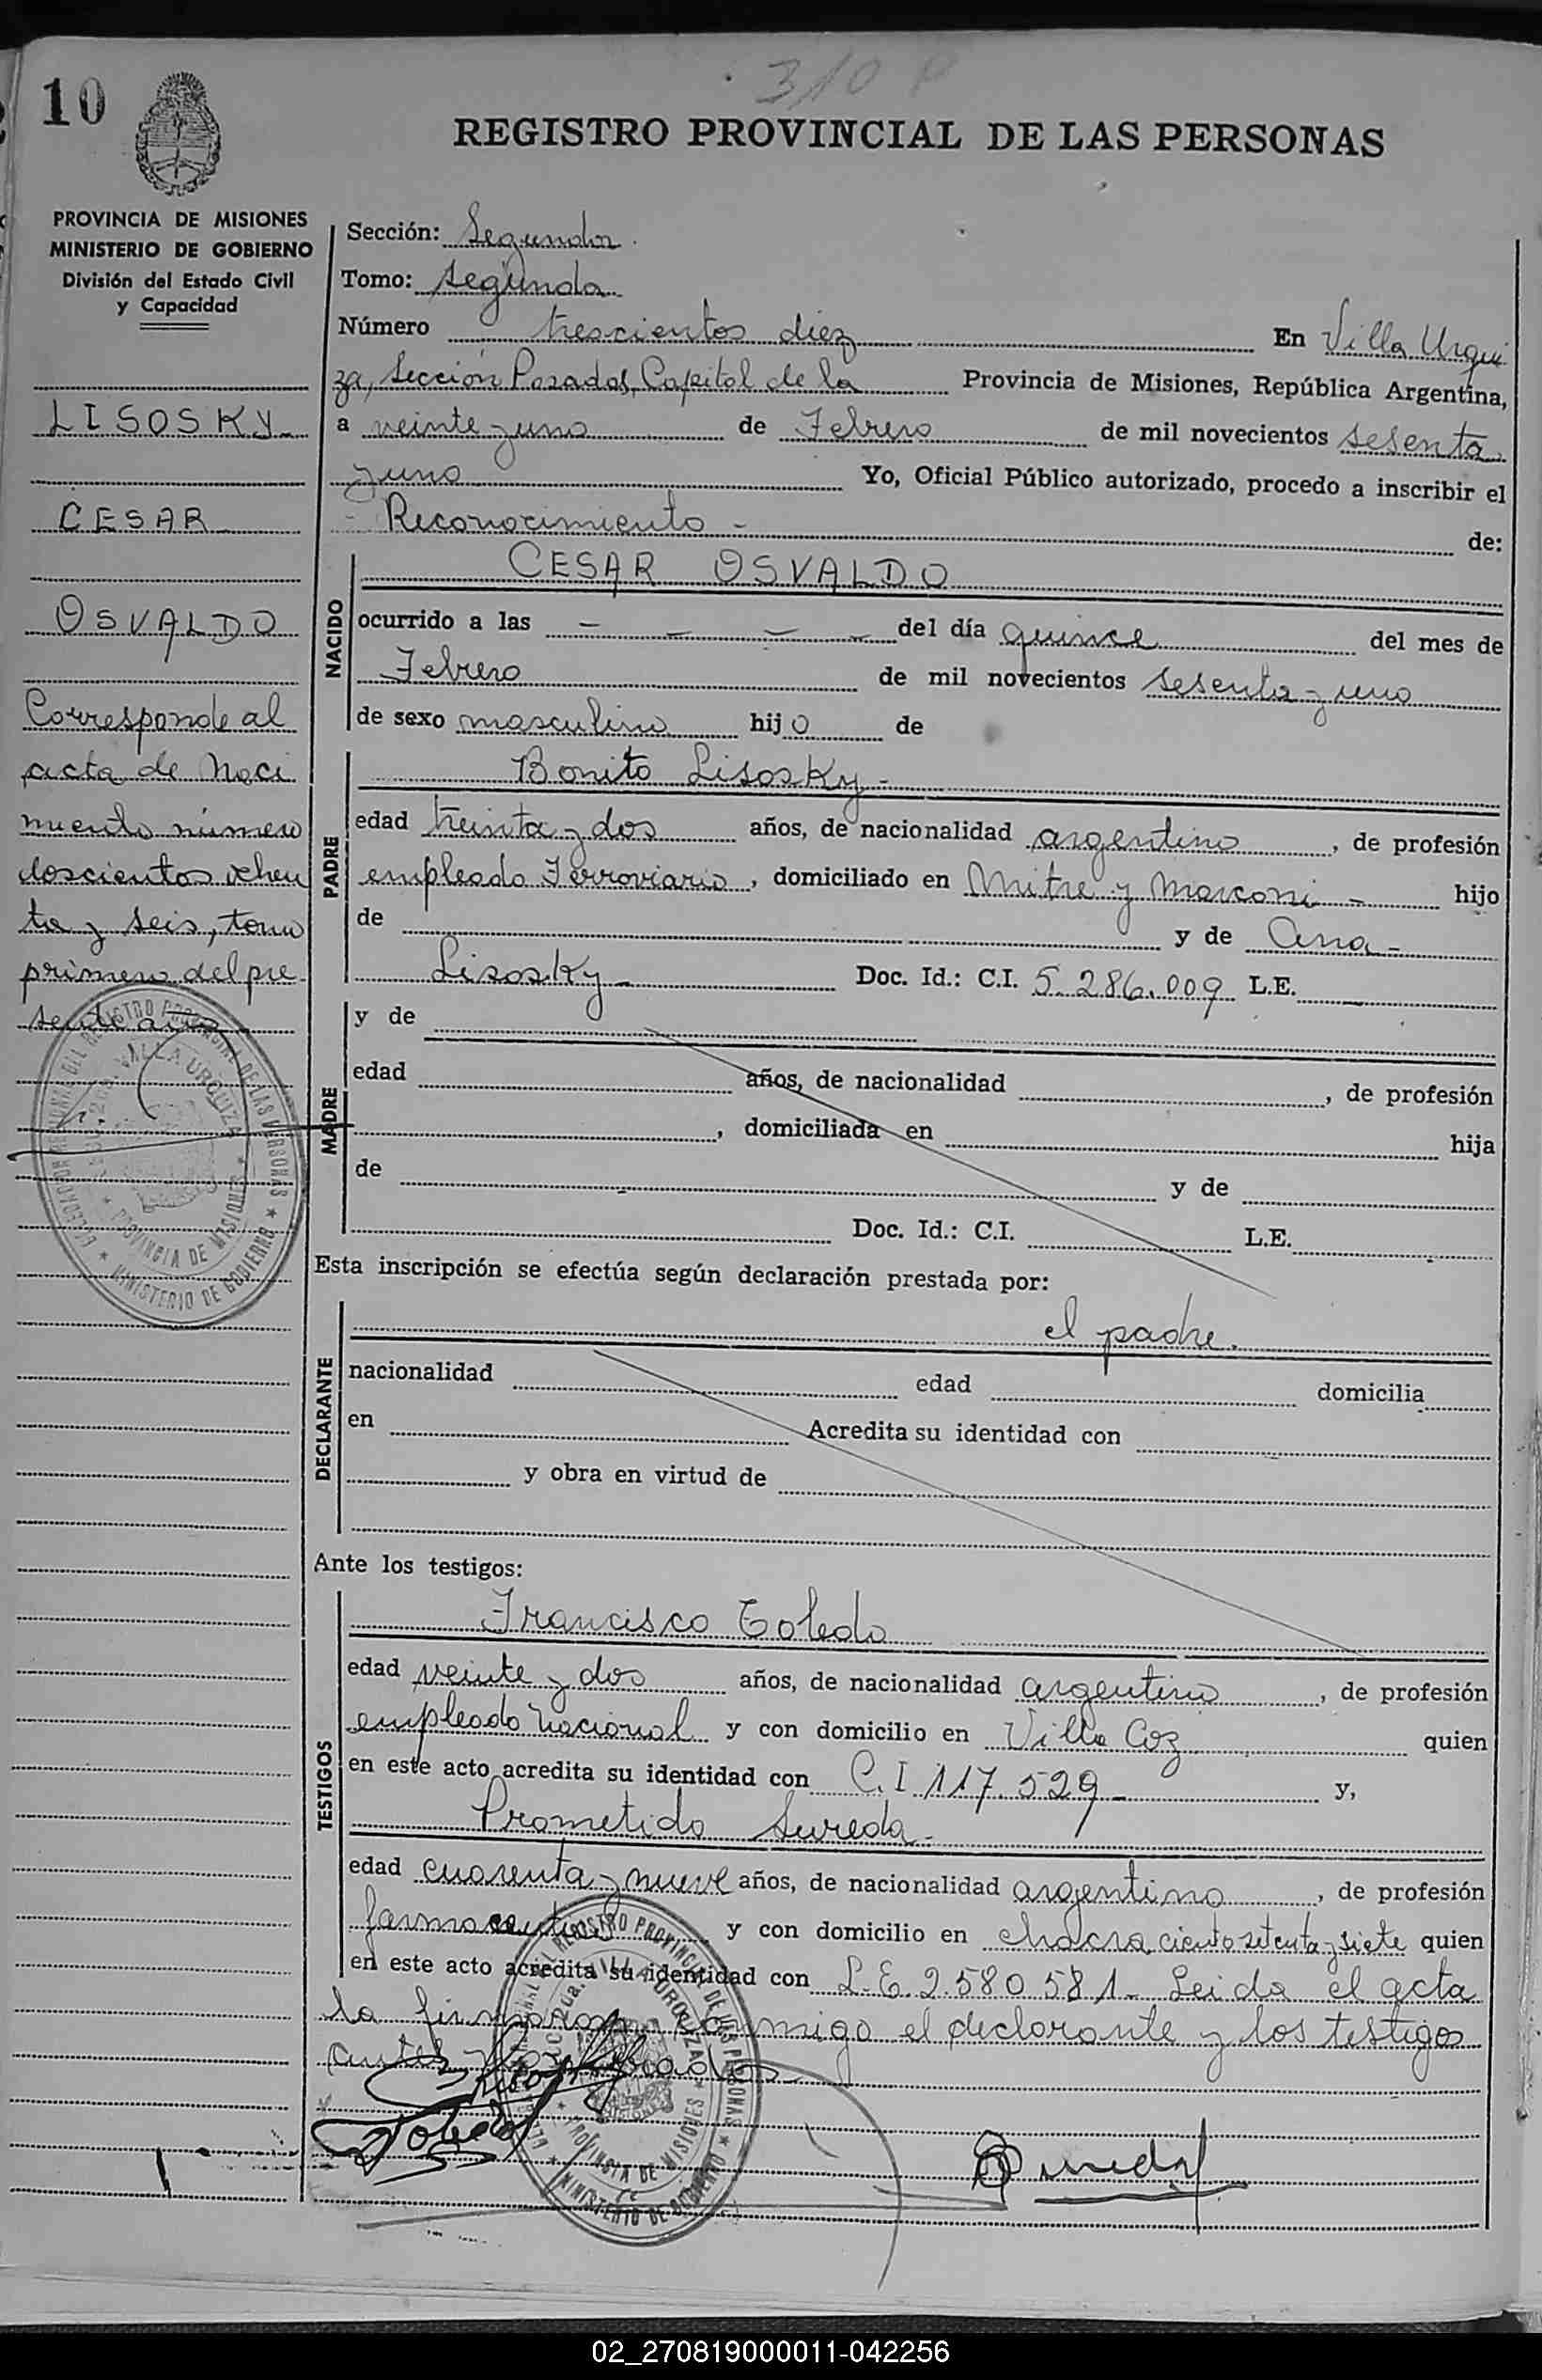 310 P
10
REGISTRO PROVINCIAL DE LAS PERSONAS
PROVINCIA DE MISIONES
MINISTERIO DE GOBIERNO
División del Estado Civil
y Capacidad
LISOSKY
CESAR
OSVALDO
Corresponde al
acta de Naci
miento número
doscientos ochen
ta y seis, tomo
primero del pre
sente año
Sección: Segunda
Tomo: segunda
Número trescientos diez En Villa Urqui
za, Sección Posadas, Capital de la Provincia de Misiones, República Argentina,
a veinte y uno de Febrero de mil novecientos sesenta
y uno Yo, Oficial Público autorizado, procedo a inscribir el
- Reconocimiento - de:
NACIDO
CESAR OSVALDO
ocurrido a las — — — — del día quince del mes de
Febrero de mil novecientos sesenta y uno
de sexo masculino hijo de
PADRE
Bonito Lisosky -
edad treinta y dos años, de nacionalidad argentino, de profesión
empleado Ferroviario, domiciliado en Mitre y Marconi - hijo
de y de Ana -
Lisosky - Doc. Id.: C.I. 5.286.009 L.E.
MADRE
y de
edad años, de nacionalidad , de profesión
, domiciliada en hija
de y de
Doc. Id.: C.I. L.E.
Esta inscripción se efectúa según declaración prestada por:
DECLARANTE
el padre.
nacionalidad edad domicilia
en Acredita su identidad con
y obra en virtud de
Ante los testigos:
TESTIGOS
Francisco Toledo
edad veinte y dos años, de nacionalidad argentino, de profesión
empleado nacional y con domicilio en Villa Coz quien
en este acto acredita su identidad con C.I 117.529 - y,
Prometido Sureda -
edad cuarenta y nueve años, de nacionalidad argentino, de profesión
farmaceutico y con domicilio en chacra ciento setenta y siete quien
en este acto acredita su identidad con L.E. 2.580.581 - Leida el acta
la firmaron conmigo el declarante y los testigos
antes
Toledo
Sureda
VILLA URQUIZA
PROVINCIA DE MISIONES
MINISTERIO DE GOBIERNO
02_270819000011-042256